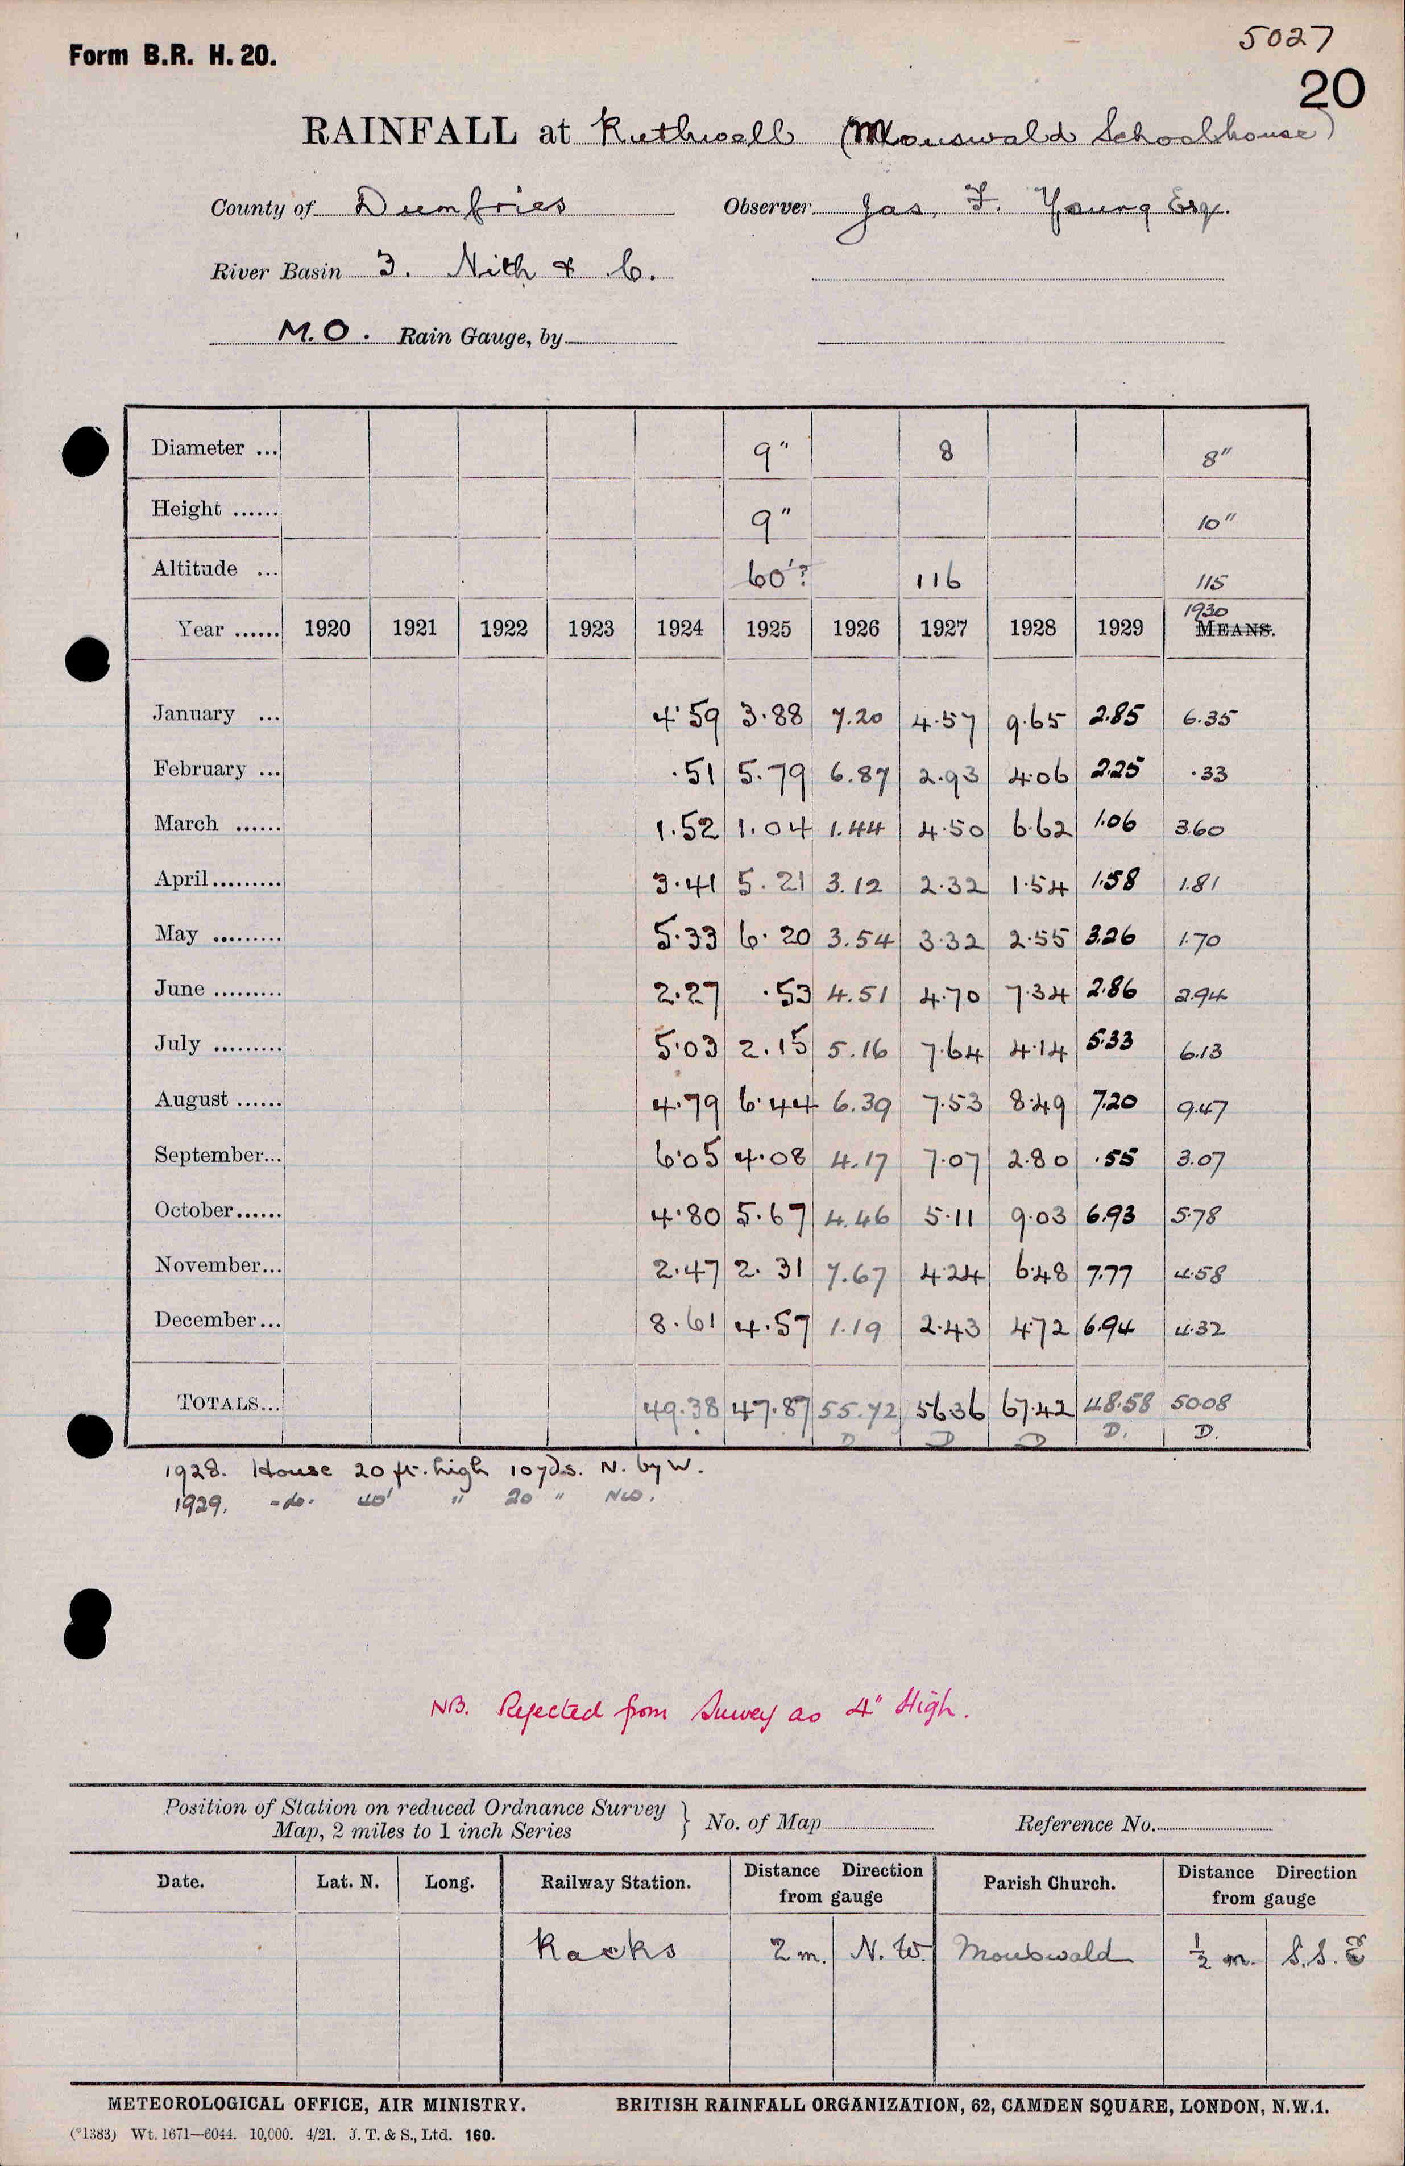 5027
Form B.R. H. 20.
20
RAINFALL at Ruthwell (Mouswald Schoolhouse)
County of Dumfries Observer Jas. F. Young Esq.
River Basin 3. Nith & C.
M.O. Rain Gauge, by
Diameter ... 9" 8 8"
Height ...... 9" 10"
Altitude ... 60'? 116 115
1930
Year ...... 1920 1921 1922 1923 1924 1925 1926 1927 1928 1929 MEANS.
January ... 4.59 3.88 7.20 4.57 9.65 2.85 6.35
February ... .51 5.79 6.87 2.93 4.06 2.25 .33
March ...... 1.52 1.04 1.44 4.50 6.62 1.06 3.60
April......... 3.41 5.21 3.12 2.32 1.54 1.58 1.81
May ......... 5.33 6.20 3.54 3.32 2.55 3.26 1.70
June ......... 2.27 .53 4.51 4.70 7.34 2.86 2.94
July ......... 5.03 2.15 5.16 7.64 4.14 5.33 6.13
August ...... 4.79 6.44 6.39 7.53 8.49 7.20 9.47
September... 6.05 4.08 4.17 7.07 2.80 .55 3.07
October...... 4.80 5.67 4.46 5.11 9.03 6.93 5.78
November... 2.47 2.31 7.67 4.24 6.48 7.77 4.58
December... 8.61 4.57 1.19 2.43 4.72 6.94 4.32
TOTALS... 49.38 47.87 55.72 56.36 67.42 48.58 50.08
D D D D. D.
1928. House 20 ft. high 10 yds. N. by W.
1929. -do- 40' " 20 " NW.
NB. Rejected from Survey as 4" High.
Position of Station on reduced Ordnance Survey
Map, 2 miles to 1 inch Series } No. of Map Reference No.
Date. Lat. N. Long. Railway Station. Distance Direction from gauge Parish Church. Distance Direction from gauge
Racks 2 m. N. W. Mouswald ½ m. S.S.E
METEOROLOGICAL OFFICE, AIR MINISTRY. BRITISH RAINFALL ORGANIZATION, 62, CAMDEN SQUARE, LONDON, N.W.1.
(*1383) Wt. 1671—6044. 10,000. 4/21. J. T. & S., Ltd. 160.